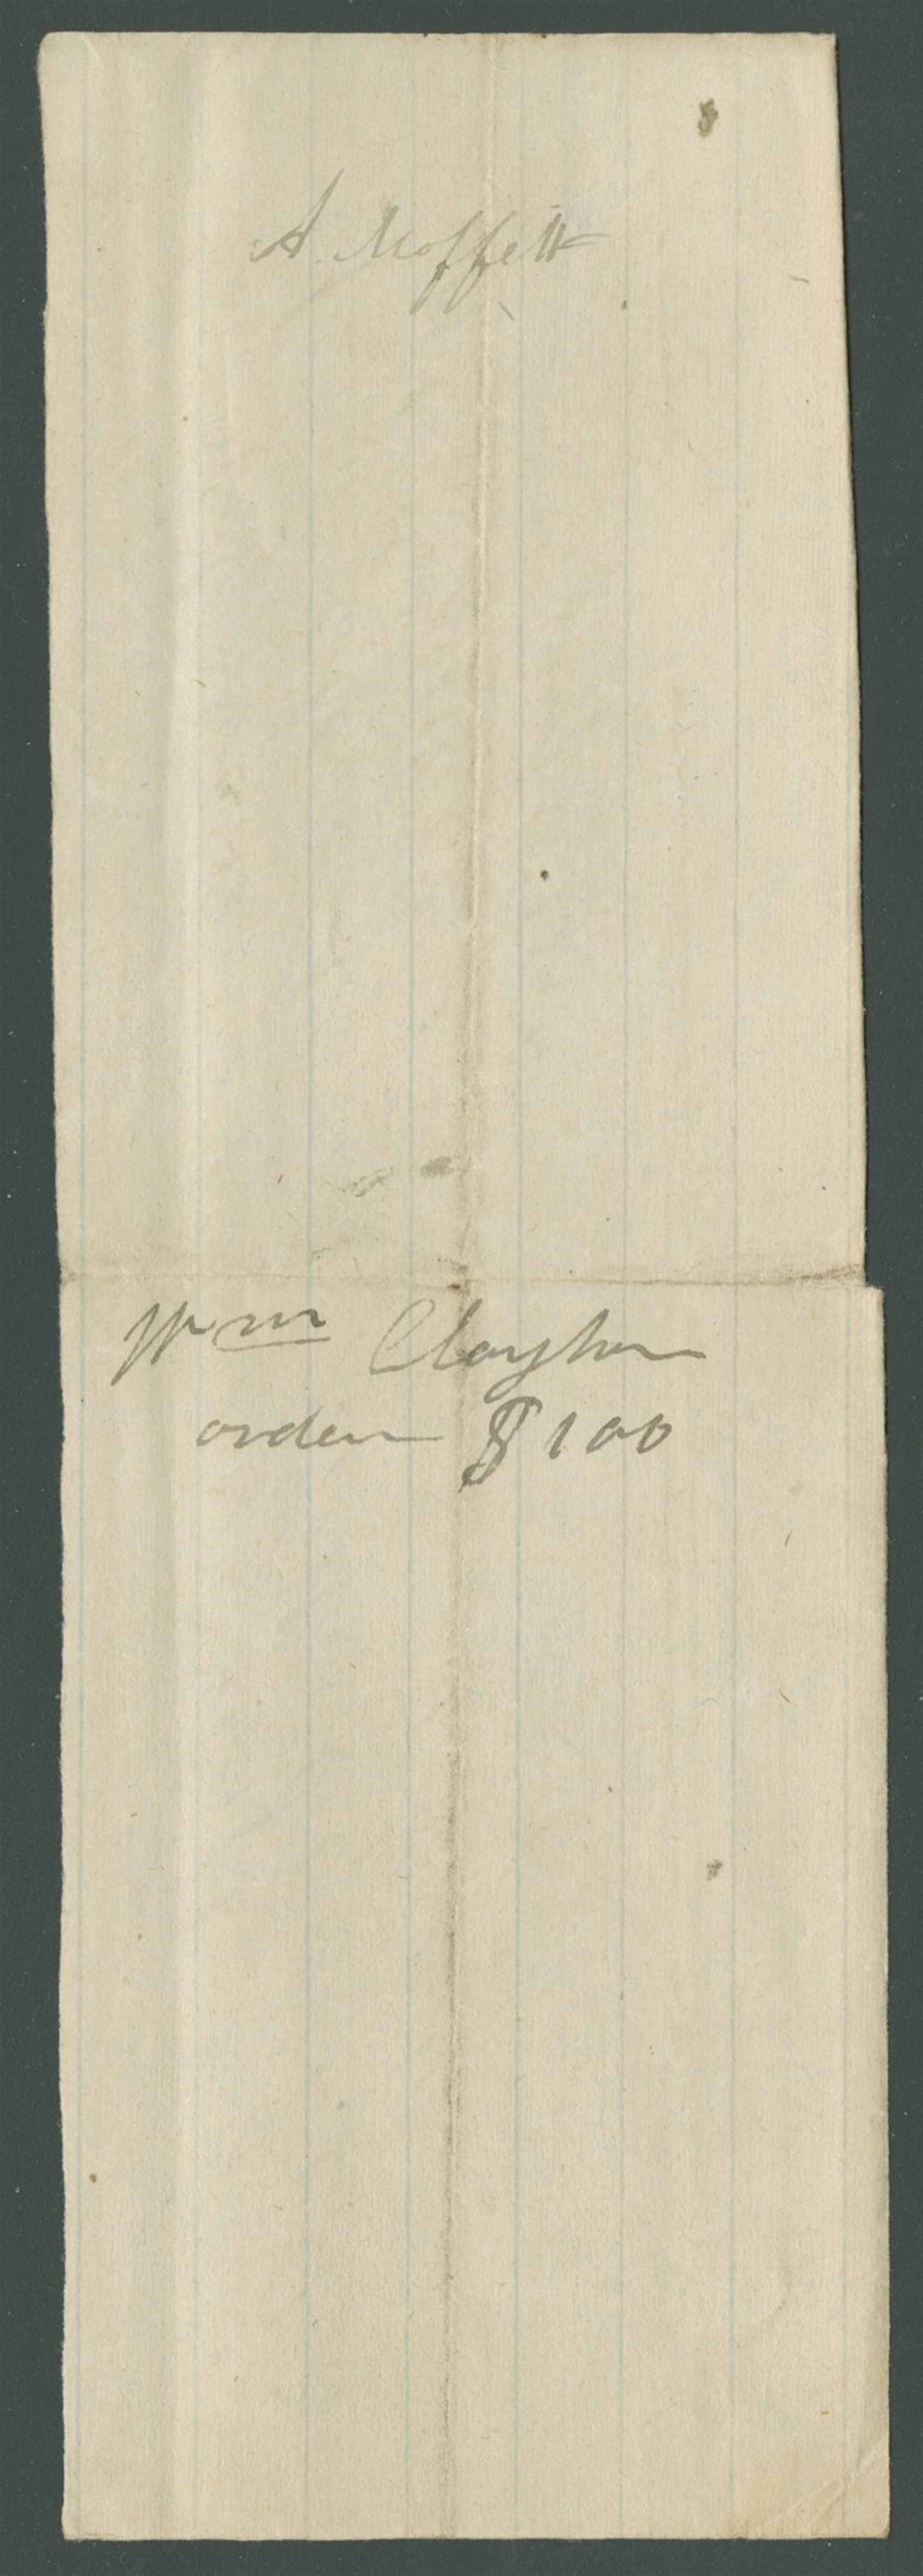 A. Moffett
Wm Clayton
order $100